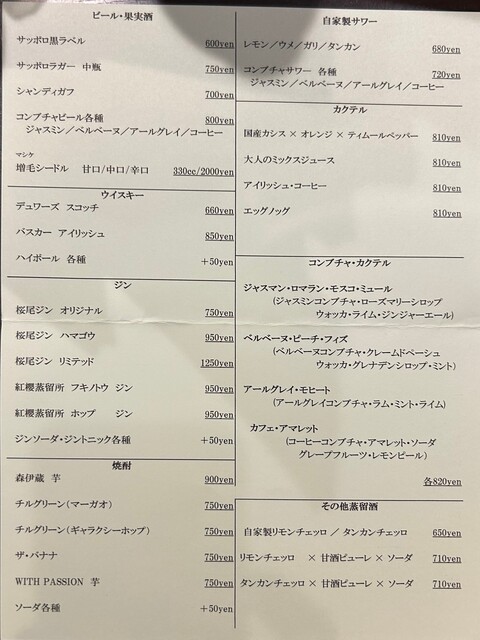 ビール・果実酒
サッポロ黒ラベル 600yen
サッポロラガー 中瓶 750yen
シャンディガフ 700yen
コンブチャビール各種 800yen
ジャスミン／ベルベーヌ／アールグレイ／コーヒー
マシケ
増毛シードル 甘口/中口/辛口 330cc/2000yen
ウイスキー
デュワーズ スコッチ 660yen
バスカー アイリッシュ 850yen
ハイボール 各種 +50yen
ジン
桜尾ジン オリジナル 750yen
桜尾ジン ハマゴウ 950yen
桜尾ジン リミテッド 1250yen
紅櫻蒸留所 フキノトウ ジン 950yen
紅櫻蒸留所 ホップ ジン 950yen
ジンソーダ・ジントニック各種 +50yen
焼酎
森伊蔵 芋 900yen
チルグリーン(マーガオ) 750yen
チルグリーン(ギャラクシーホップ) 750yen
ザ・バナナ 750yen
WITH PASSION 芋 750yen
ソーダ各種 +50yen
自家製サワー
レモン／ウメ／ガリ／タンカン 680yen
コンブチャサワー 各種 720yen
ジャスミン／ベルベーヌ／アールグレイ／コーヒー
カクテル
国産カシス × オレンジ × ティムールペッパー 810yen
大人のミックスジュース 810yen
アイリッシュ・コーヒー 810yen
エッグノッグ 810yen
コンブチャ・カクテル
ジャスマン・ロマラン・モスコ・ミュール
(ジャスミンコンブチャ・ローズマリーシロップ
ウォッカ・ライム・ジンジャーエール)
ベルベーヌ・ピーチ・フィズ
(ベルベーヌコンブチャ・クレームドペーシュ
ウォッカ・グレナデンシロップ・ミント)
アールグレイ・モヒート
(アールグレイコンブチャ・ラム・ミント・ライム)
カフェ・アマレット
(コーヒーコンブチャ・アマレット・ソーダ
グレープフルーツ・レモンピール)
各820yen
その他蒸留酒
自家製リモンチェッロ ／ タンカンチェッロ 650yen
リモンチェッロ × 甘酒ピューレ × ソーダ 710yen
タンカンチェッロ × 甘酒ピューレ × ソーダ 710yen